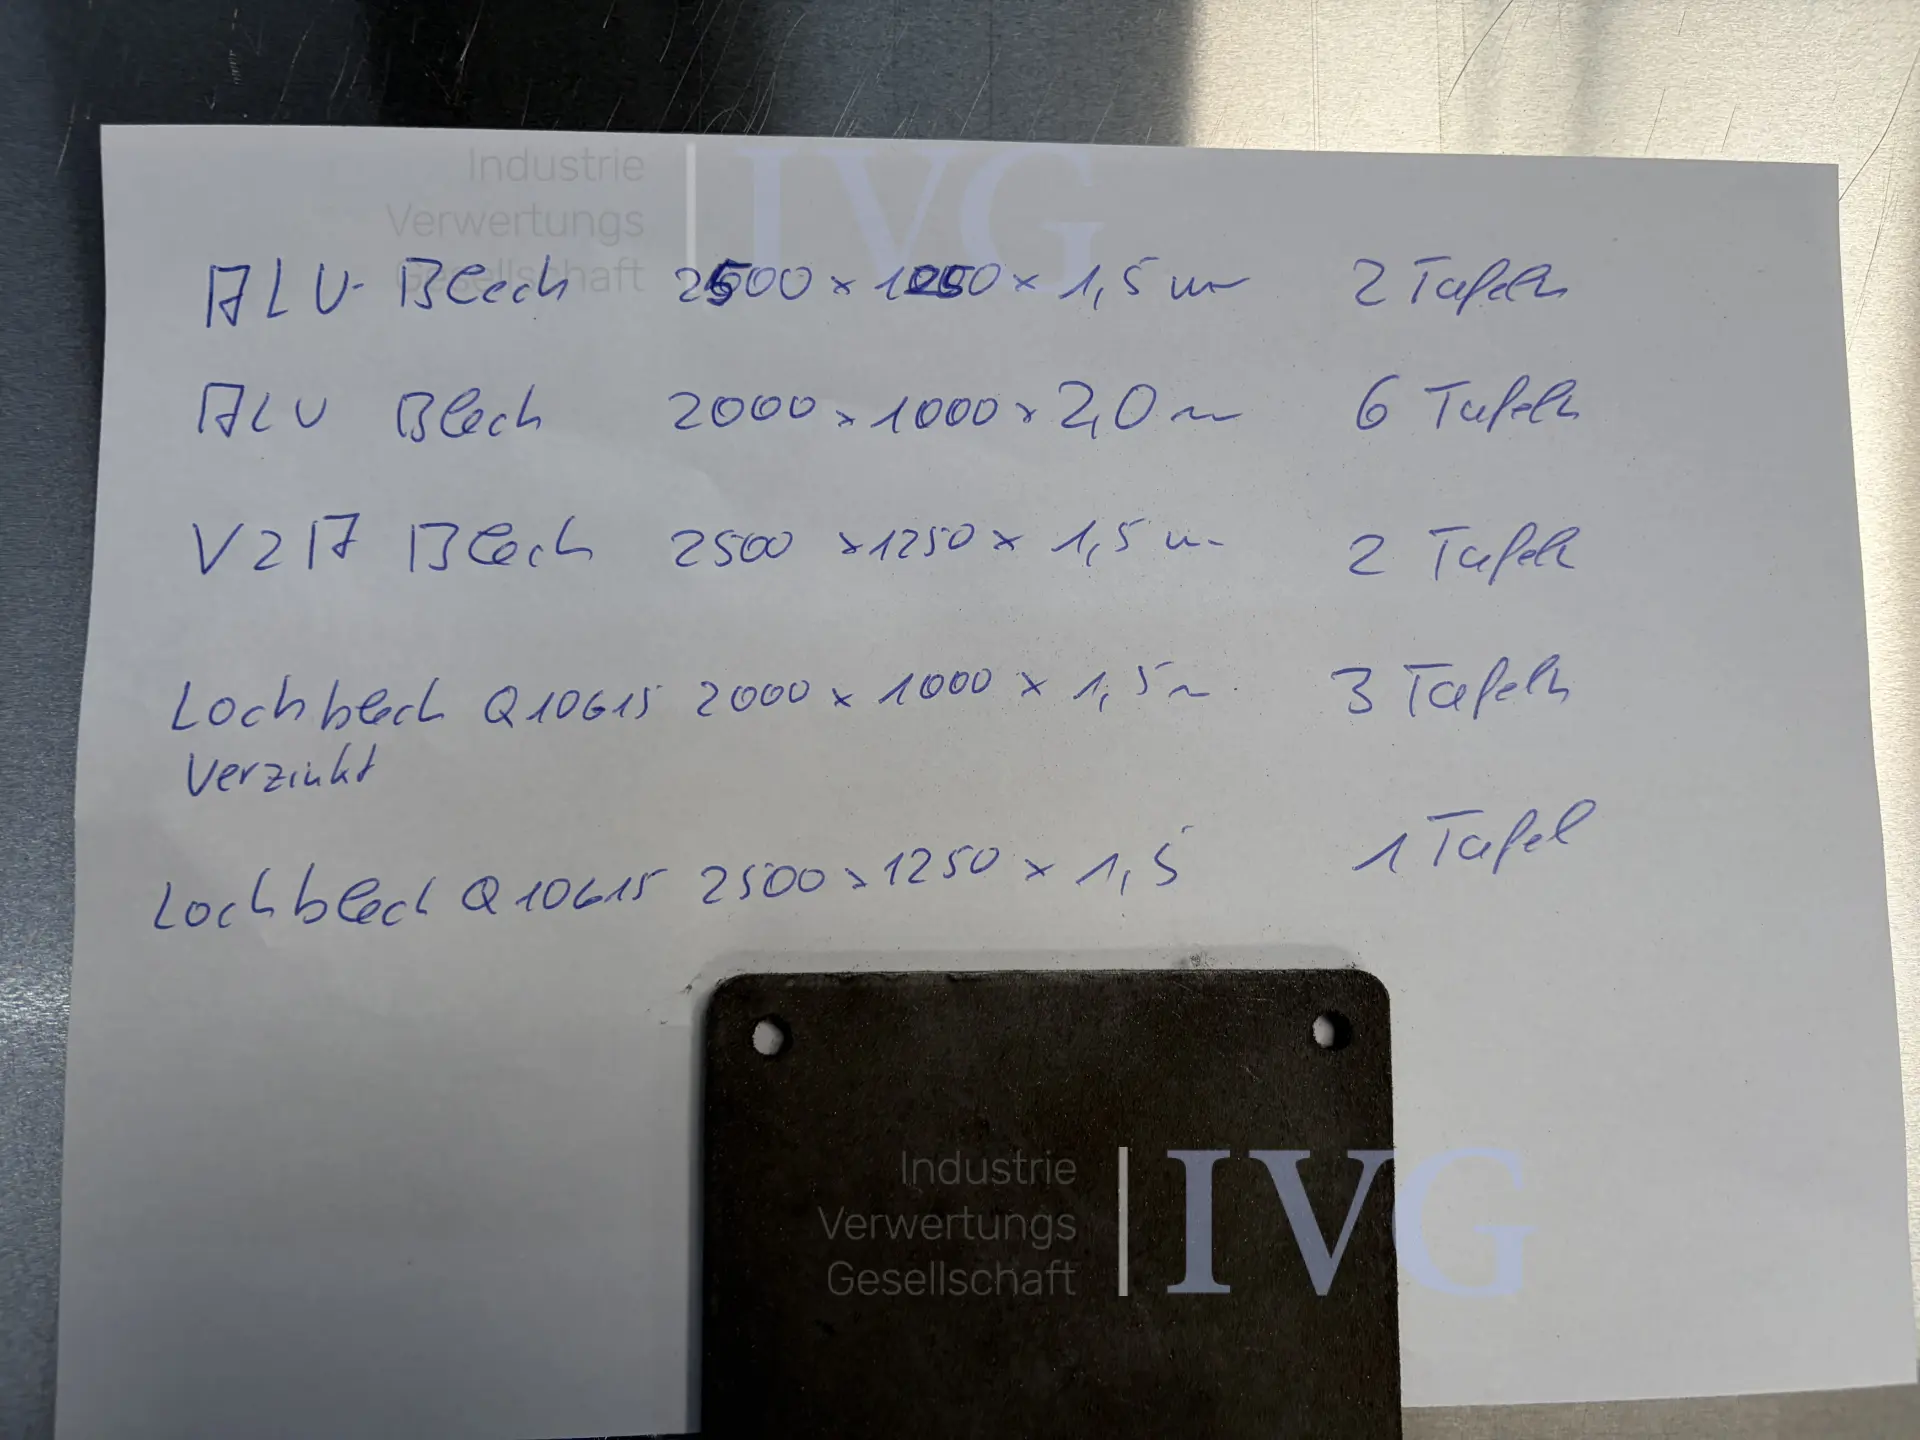 Industrie
Verwertungs
Gesellschaft
IVG
ALU-Blech 2500 x 1250 x 1,5 mm 2 Tafeln
ALU Blech 2000 x 1000 x 2,0 mm 6 Tafeln
V2A Blech 2500 x 1250 x 1,5 mm 2 Tafeln
Lochblech Q10615 2000 x 1000 x 1,5 mm 3 Tafeln
Verzinkt
Lochblech Q10615 2500 x 1250 x 1,5 1 Tafel
Industrie
Verwertungs
Gesellschaft
IVG